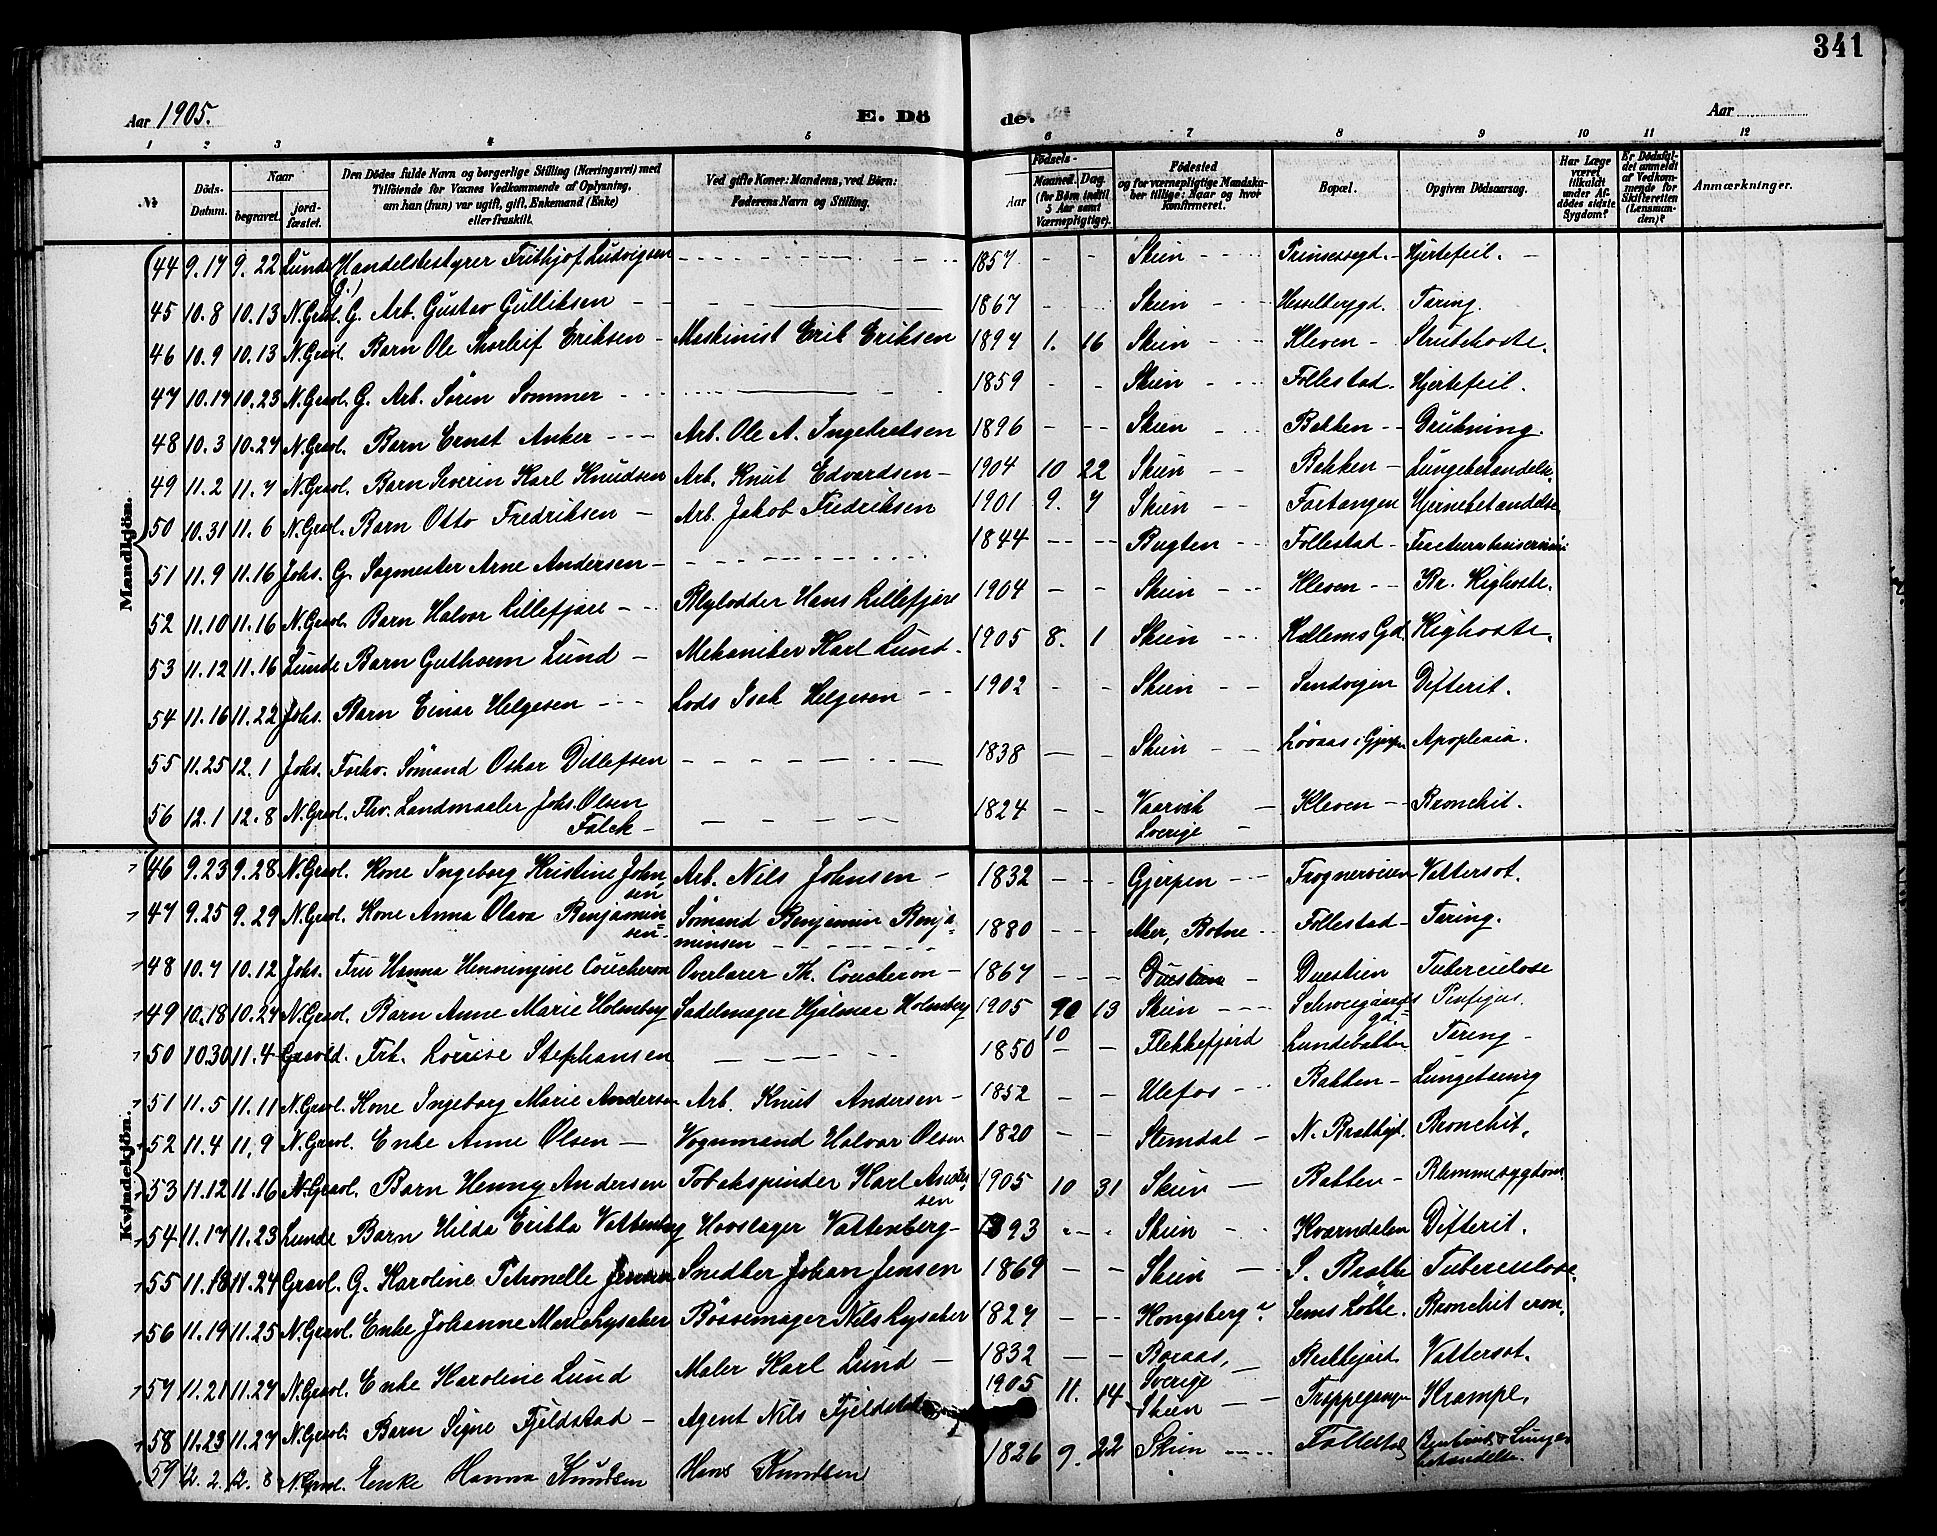 341
Aar 1905. E. Dö de. Aar
1 2 3 4 5 6 7 8 9 10 11 12
№ Döds-Datum. Naar begravet. jord-fæstet. Den Dödes fulde Navn og borgerlige Stilling (Næringsvei) med Tilföiende for Voxnes Vedkommende af Oplysning, om han (hun) var ugift, gift, Enkemand (Enke) eller fraskilt. Ved gifte Koner: Mandens, ved Börn: Faderens Navn og Stilling. Födsels- Aar Maaned. Dag (for Börn indtil 5 Aar samt Værnepligtige). Födested og for værnepligtige Mandska-ber tillige: Naar og hvor konfirmeret. Bopæl. Opgiven Dödsaarsag. Har Læge været tilkaldt under Af-dödes sidste Sygdom? Er Dödsfal-det anmeldt af Vedkom-mende for Skifteretten (Lensman-den)? Anmærkninger.
Mandkjön.
44 9.17 9.22 Lunde Handelsbestyrer Frithjof Ludvigsen 1857 - - Skien Prinsessegd. Hjertefeil.
45 10.8 10.13 N.Gravl. G. Arb. Gustav Gulliksen 1867 - - Skien Hesselbergd. Tæring.
46 10.9 10.13 N.Gravl. Barn Ole Thorleif Eriksen Maskinist Erik Eriksen 1894 1. 16 Skien Kleven Strubehoste.
47 10.17 10.23 N.Gravl. G. Arb. Sören Sommer 1859 - - Skien Follestad. Hjertefeil.
48 10.3 10.27 N.Gravl. Barn Ernst Anker Arb. Ole A. Ingebretsen 1896 - - Skien Bakken Drukning.
49 11.2 11.7 N.Gravl. Barn Severin Karl Knudsen Arb. Knut Edvardsen 1904 10 22 Skien Bakken Lungebetændelse
50 10.31 11.6 N.Gravl. Barn Otto Fredriksen Arb. Jakob Fredriksen 1901 9. 7 Skien Fartangen Hjernebetændelse
51 11.9 11.16 Johs. G. Sagmester Arne Andersen 1844 - - Bugten Follestad Fractura baseos cranii
52 11.10 11.16 N.Gravl. Barn Halvor Lillefjære Blylodder Hans Lillefjære 1904 - - Skien Kleven Br. Kighoste.
53 11.12 11.16 Lunde Barn Guthorm Lund Mekaniker Karl Lund. 1905 8. 1 Skien Kallems Gd. Kighoste.
54 11.16 11.22 Johs. Barn Einar Helgesen Lods Isak Helgesen 1902 - - Skien Sandvegen Difterit.
55 11.25 12.1 Johs. Forhv. Sömand Oskar Ditlefsen 1838 - Skien Lövaas i Gjerpen Apoplexia.
56 12.1 12.8 N.Gravl. Fhv. Landmaaler Johs. Olsen Falck 1824 - - Vaarvik Sverige Kleven Bronchit.
Kvindekjön.
46 9.23 9.28 N.Gravl. Kone Ingeborg Kristine Johnsen Arb. Nils Johnsen 1832 - - Gjerpen Frognerveien Vattersot.
47 9.25 9.29 N.Gravl. Kone Anna Olava Benjaminsen Sömand Benjamin Benjaminsen 1880 - - Aker, Botne Follestad Tæring.
48 10.7 10.12 Johs. Fru Hanna Henningine Coucheron Overlærer Th. Coucheron 1867 - - Duestien Duestien Tuberculose
49 10.18 10.24 N.Gravl. Barn Anne Marie Holmberg Sadelmager Hjalmar Holmberg 1905 10 13 Skien Schweigaards gd. Penfigus.
50 10.30 11.4 Gravl. Frk. Lovise Stephansen 1850 - - Flekkefjord Lundebakken Tæring
51 11.5 11.11 N.Gravl. Kone Ingeborg Marie Andersen Arb. Knut Andersen 1852 - - Ulefos Bakken Lungetæring
52 11.4 11.9 N.Gravl. Enke Anne Olsen Vognmand Halvor Olsen 1820 - - Slemdal N. Brækkegd. Bronchit.
53 11.12 11.16 N.Gravl. Barn Henny Andersen Tobakspinder Karl Andersen 1905 10 31 Skien Bakken Blemmesygdom
54 11.17 11.23 Lunde Barn Hilda Erikka Vattenberg Hovslager Vattenberg 1893 - - Skien Kværndalen Difterit.
55 11.18 11.24 Gravl. G. Karoline Petronelle Jensen Snedker Johan Jensen 1869 - - Skien S. Brække Tuberculose.
56 11.19 11.25 N.Gravl. Enke Johanne Marie Lysaker Bössemager Nils Lysaker 1827 - - Kongsberg Sems Lökke. Bronchit cron.
57 11.21 11.27 N.Gravl. Enke Karoline Lund Maler Karl Lund 1832 - - Boraas, Sverige Brekkejord Vattersot.
58 11.23 11.27 N.Gravl. Barn Signe Fjeldstad Agent Nils Fjeldstad 1905 11. 14 Skien Trappegangen Krampe.
59 12.2. 12.8 N.Gravl. Enke Hanna Knudsen Hans Knudsen 1826 9. 22 Skien Follestad Benbrud & Lungebetændelse